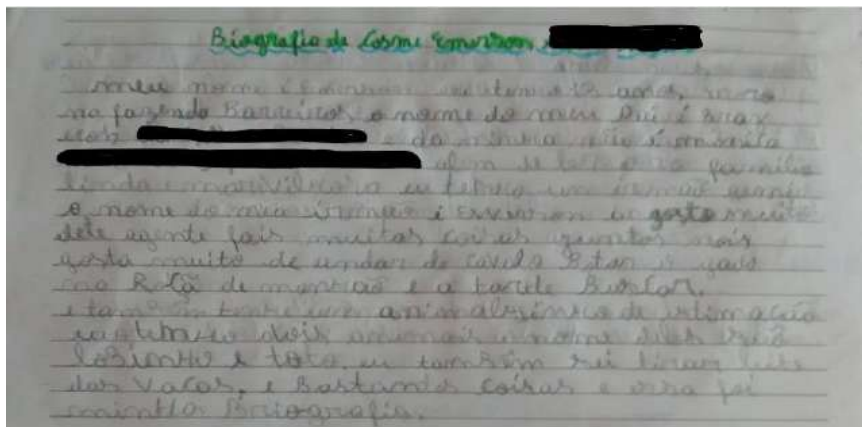 Biografia de Cosme Emerson
meu nome é Emerson eu tenho 12 anos, moro
na fazenda Barreiros, o nome do meu Pai é
e da minha mãe é
alem de tenho familia
linda e marivilhora eu tenho um irmão
o nome do meu irmão é Everson eu gosto muito
dele agente fais muitas coisas juntos nois
gosta muito de andar de cavalo Botar o gado
na Roça de manhão e a tarde Buscar,
e também tenho um animalzinho de estimação
eu tenho dois animais o nome deles são
lobinho e totó, eu também sei tirar leite
das Vacas, e Bastante coisas e essa foi
minha Biografia.